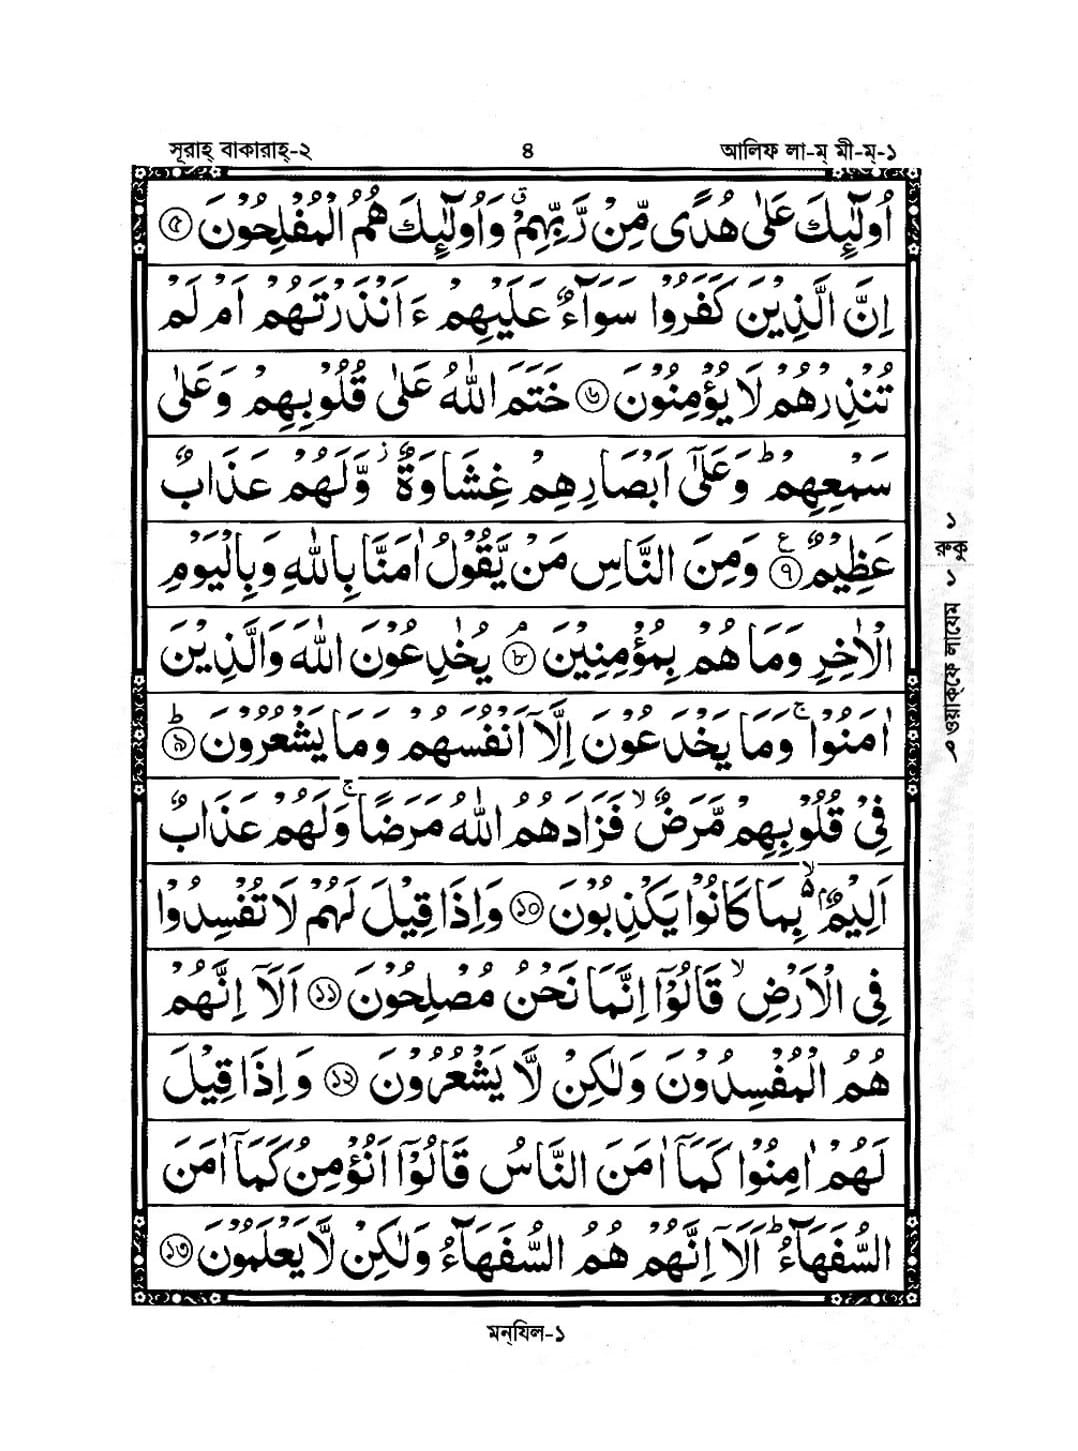 সূরাহ্ বাকারাহ্-২ ৪ আলিফ লা-ম্ মী-ম্-১
اُولٰٓئِكَ عَلٰى هُدًى مِّنْ رَّبِّهِمْ ۗ وَاُولٰٓئِكَ هُمُ الْمُفْلِحُوْنَ ৫
اِنَّ الَّذِيْنَ كَفَرُوْا سَوَآءٌ عَلَيْهِمْ ءَاَنْذَرْتَهُمْ اَمْ لَمْ
تُنْذِرْهُمْ لَا يُؤْمِنُوْنَ ৬ خَتَمَ اللّٰهُ عَلٰى قُلُوْبِهِمْ وَعَلٰى
سَمْعِهِمْ ؕ وَعَلٰٓى اَبْصَارِهِمْ غِشَاوَةٌ ز وَّلَهُمْ عَذَابٌ
عَظِيْمٌ ৭ ع وَمِنَ النَّاسِ مَنْ يَّقُوْلُ اٰمَنَّا بِاللّٰهِ وَبِالْيَوْمِ
الْاٰخِرِ وَمَا هُمْ بِمُؤْمِنِيْنَ ۘ ৮ يُخٰدِعُوْنَ اللّٰهَ وَالَّذِيْنَ
اٰمَنُوْا ۚ وَمَا يَخْدَعُوْنَ اِلَّآ اَنْفُسَهُمْ وَمَا يَشْعُرُوْنَ ؕ ৯
فِيْ قُلُوْبِهِمْ مَّرَضٌ ۙ فَزَادَهُمُ اللّٰهُ مَرَضًا ۚ وَلَهُمْ عَذَابٌ
اَلِيْمٌۢ ۙ۬ بِمَا كَانُوْا يَكْذِبُوْنَ ১০ وَاِذَا قِيْلَ لَهُمْ لَا تُفْسِدُوْا
فِي الْاَرْضِ ۙ قَالُوْٓا اِنَّمَا نَحْنُ مُصْلِحُوْنَ ১১ اَلَآ اِنَّهُمْ
هُمُ الْمُفْسِدُوْنَ وَلٰكِنْ لَّا يَشْعُرُوْنَ ১২ وَاِذَا قِيْلَ
لَهُمْ اٰمِنُوْا كَمَآ اٰمَنَ النَّاسُ قَالُوْٓا اَنُؤْمِنُ كَمَآ اٰمَنَ
السُّفَهَآءُ ؕ اَلَآ اِنَّهُمْ هُمُ السُّفَهَآءُ وَلٰكِنْ لَّا يَعْلَمُوْنَ ১৩
১
রুকু
১
ওয়াক্ফে লাযেম
মন্‌যিল-১